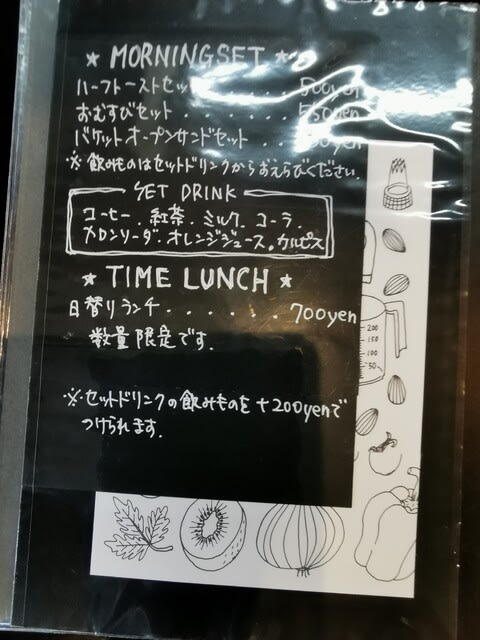 ★ MORNINGSET ★
ハーフトーストセット . . . 500yen
おむすびセット . . . . . . . 550yen
バケットオープンサンドセット . . yen
※ 飲みものはセットドリンクからおえらびください.
SET DRINK
コーヒー. 紅茶. ミルク. コーラ.
メロンソーダ. オレンジジュース. カルピス
★ TIME LUNCH ★
日替りランチ . . . . . . 700yen
数量限定です.
※ セットドリンクの飲みものを +200yenで
つけられます.
200
150
100
50